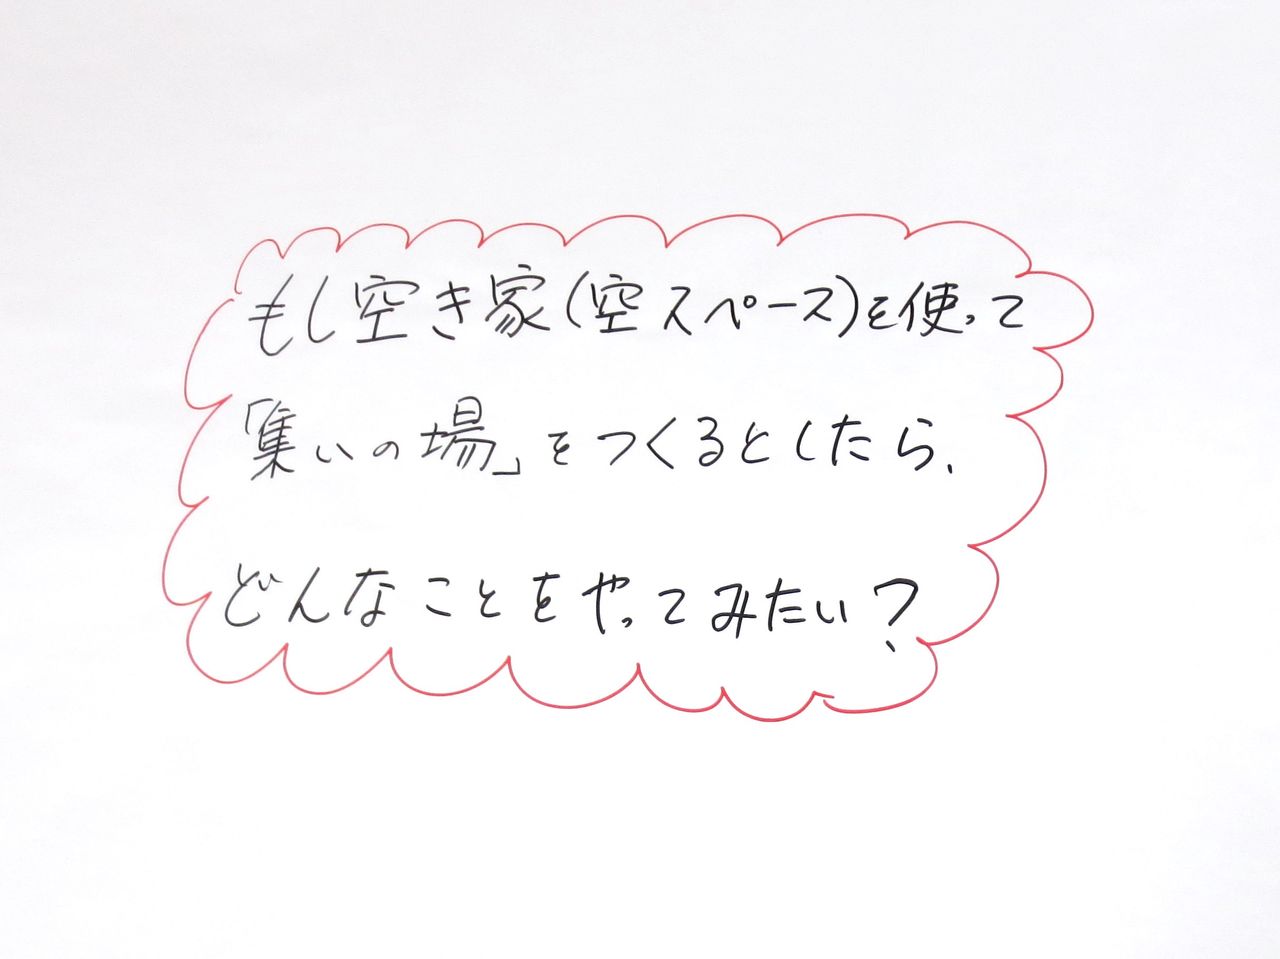 もし空き家(空スペース)を使って
「集いの場」をつくるとしたら、
どんなことをやってみたい?